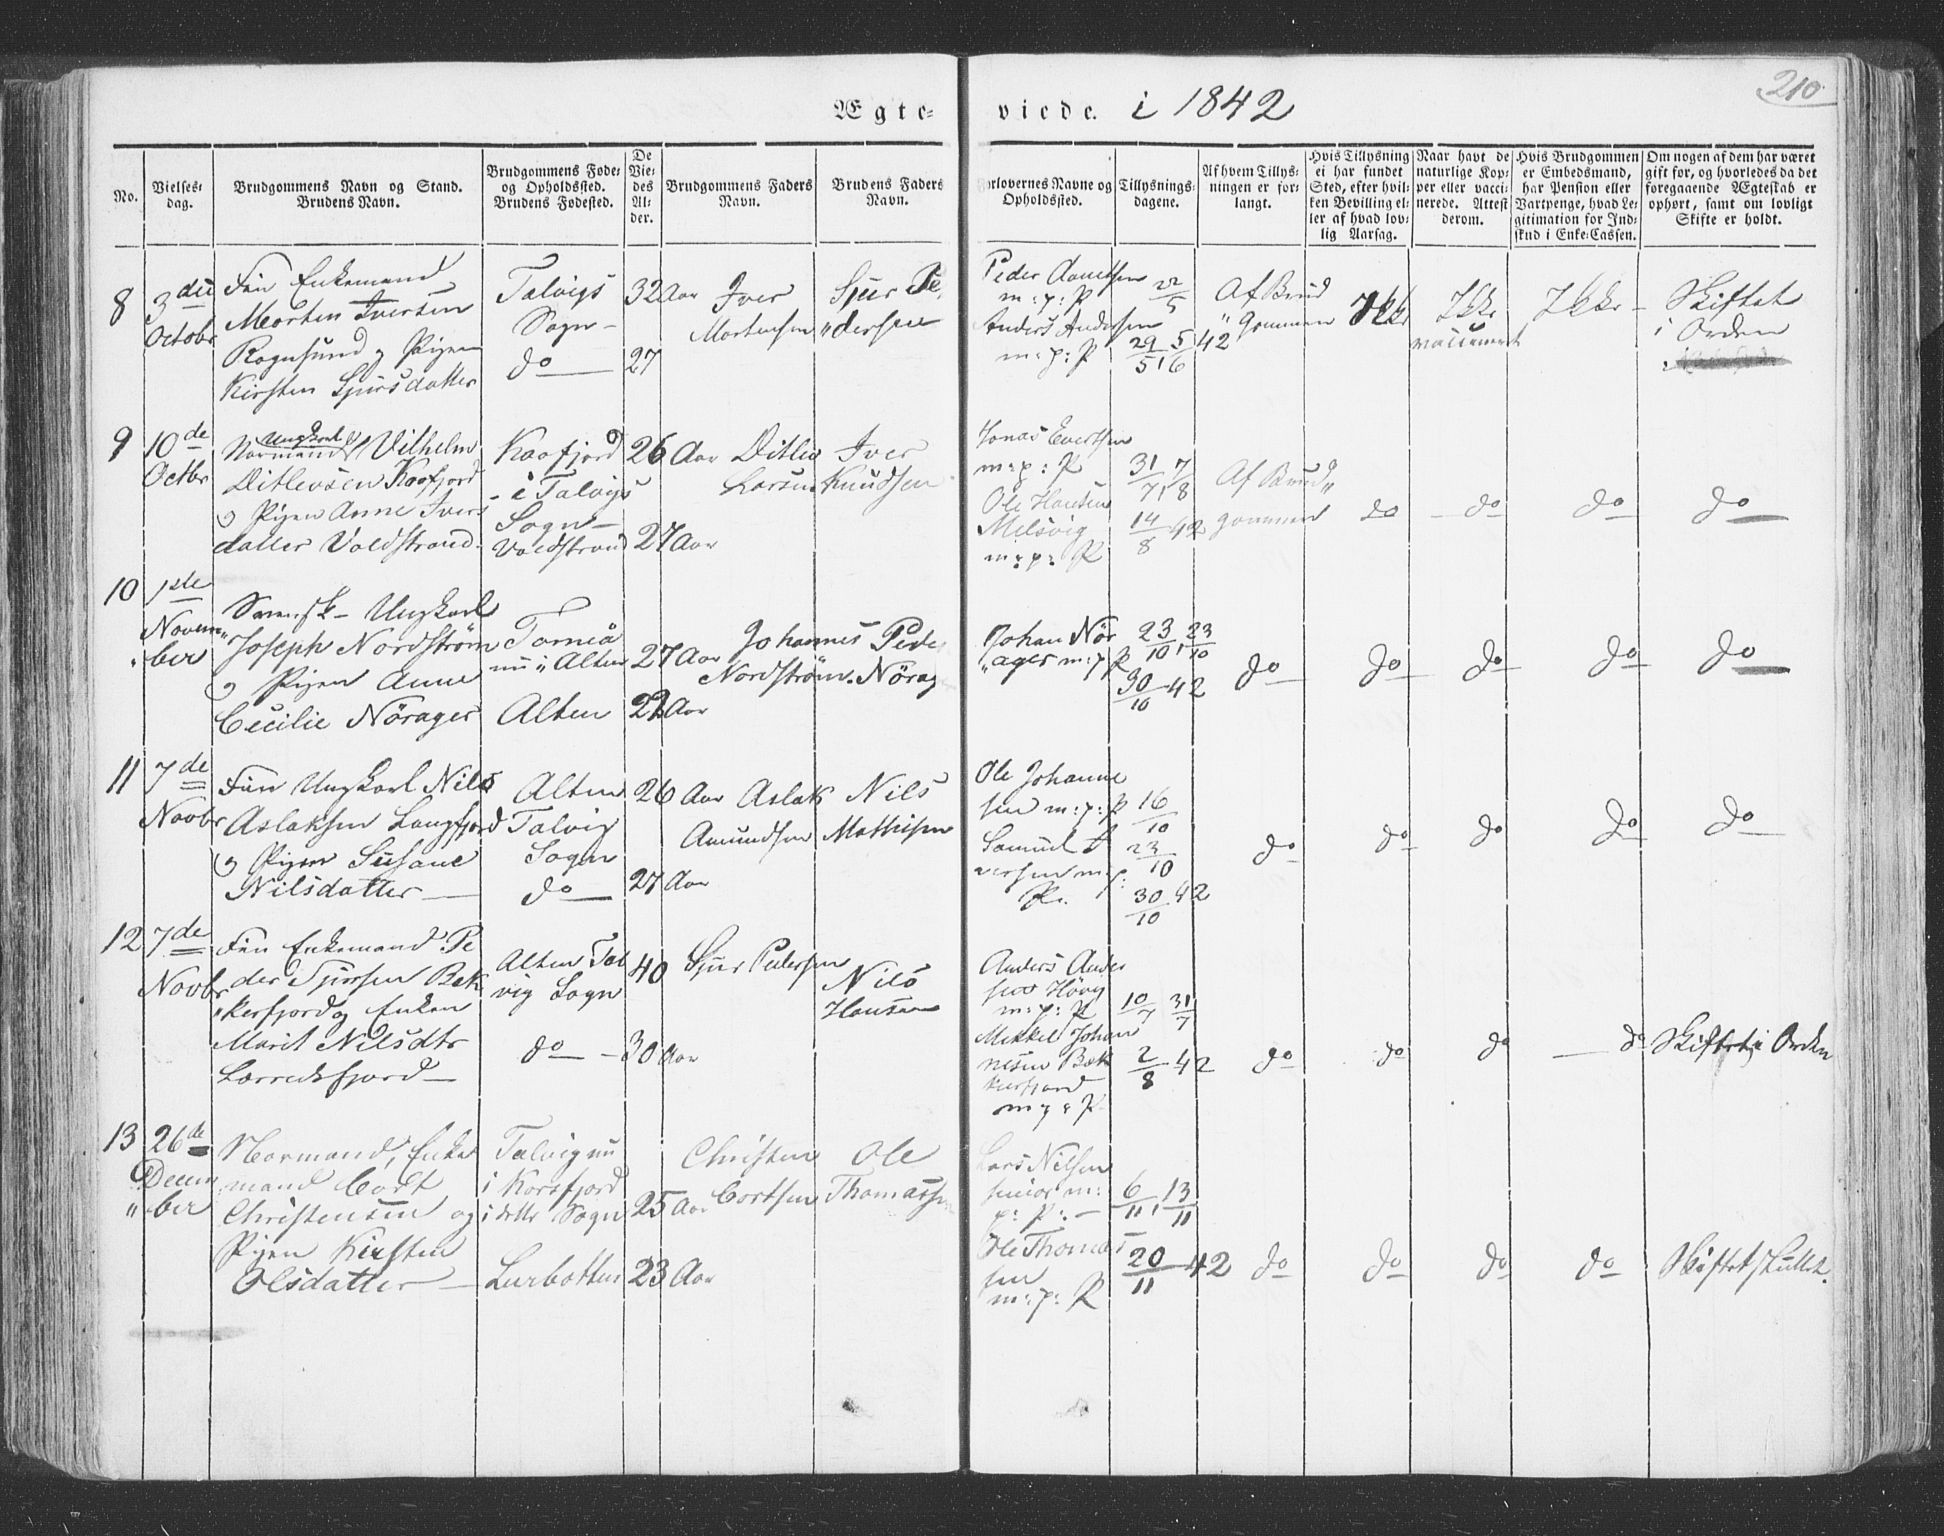 210
Ægte- viede. i 1842
No.
Vielses-
dag.
Brudgommens Navn og Stand.
Brudens Navn.
Brudgommens Føde-
og Opholdssted.
Brudens Fødested.
De
Vie-
des
Al-
der.
Brudgommens Faders
Navn.
Brudens Faders
Navn.
Forlovernes Navne og
Opholdssted.
Tillysnings-
dagene.
Af hvem Tillys-
ningen er for-
langt.
Hvis Tillysning
ei har fundet
Sted, efter hvil-
ken Bevilling el-
ler af hvad lov-
lig Aarsag.
Naar havt de
naturlige Kop-
per eller vacci-
nerede. Attest
derom.
Hvis Brudgommen
er Embedsmand,
har Pension eller
Vartpenge, hvad Le-
gitimation for Ind-
skud i Enke-Cassen.
Om nogen af dem har været
gift før, og hvorledes da det
foregaaende Ægteskab er
ophørt, samt om lovligt
Skifte er holdt.
8
3die
Octobr
Fin Enkemand
Morten Iversen
Rognsund og Pigen
Kirsten Sjursdatter
Talvigs
Sogn
do
32 Aar
27
Iver
Mortensen
Sjur Pe
dersen
Peder
m: p: P
Anders Andersen
m: p: P
22/5
29/5 5/6 42
Af Brud
gommen
Ikke
Ikke
vaccineret
Ikke
Skiftet
i Orden
9
10de
Octbr
Ungkarl
Normand Vilhelm
Ditlevsen Kaafjord
og Pigen Anne Ivers
datter Voldstrand
Kaafjord
i Talvigs
Sogn
Voldstrand
26 Aar
27 Aar
Ditlev
Larsen
Iver
Knudsen
Jonas Evertsen
m: p: P
Ole Hansen
Melsvig
m: p: P
31/7 7/8
14/8 42
Af Brud
gommen
do
do
do
do
10
1ste
Novem
ber
Svensk Ungkarl
Joseph Nordstrøm
og Pigen Anne
Cecilie Nørager
Torneå
nu i Alten
Alten
27 Aar
22 Aar
Johannes
Nordstrøm
Peder
Nørag
Johan Nør
ager m: p P
23/10 23/10
30/10 42
do
do
do
do
do
11
7de
Novbr
Fin Ungkarl Nils
Aslaksen Langfjord
og Pigen Susane
Nilsdatter
Alten
Talvig
Sogn
do
26 Aar
27 Aar
Aslak
Amundsen
Nils
Mathisen
Ole Johanne
sen m: p: P
Samuel I
versen m: p:
P.
16/10
23/10
30/10 42
do
do
do
do
do
12
7de
Novbr
Fin Enkemand Pe
der Sjursen Bek
kerfjord og Enken
Marit Nilsdtr
Lerredsfjord
Alten Tal
vig Sogn
do
40
30 Aar
Sjur Pedersen
Nils
Hansen
Anders Ander
sen
m: p: P
Mikkel Johan
nesen Bek
kerfjord
m p P
10/7 31/7
2/8 42
do
do
do
do
Skiftet i Orden
13
26de
Decem
ber
Normand, Enke
mand Cort
Christensen og
Pigen Kirsten
Olsdatter
Talvig nu
i Korsfjord
i dette Sogn
Lerbotten
25 Aar
23 Aar
Christen
Cortsen
Ole
Thomassen
Lars Nilsen
senior m:
p: P:
Ole Thomas
sen
m: p: P
6/11 13/11
20/11 42
do
do
do
do
Skiftet